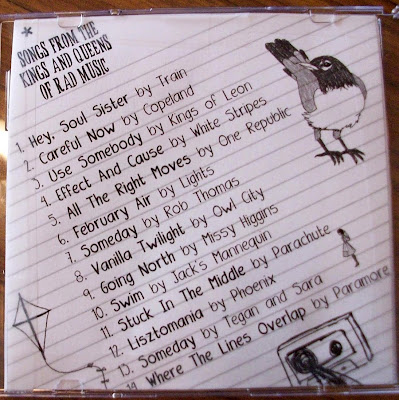 SONGS FROM THE
KINGS AND QUEENS
OF RAD MUSIC
1. Hey, Soul Sister by Train
2. Careful Now by Copeland
3. Use Somebody by Kings of Leon
4. Effect And Cause by White Stripes
5. All The Right Moves by One Republic
6. February Air by Lights
7. Someday by Rob Thomas
8. Vanilla Twilight by Owl City
9. Going North by Missy Higgins
10. Swim by Jack's Mannequin
11. Stuck In The Middle by Parachute
12. Lisztomania by Phoenix
13. Someday by Tegan and Sara
14. Where The Lines Overlap by Paramore